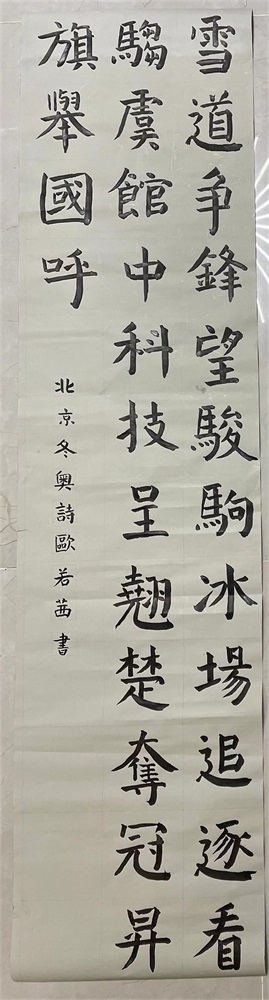 雪道争鋒望駿駒冰場追逐看
騶虞館中科技呈翹楚奪冠昇
旗舉國呼
北京冬奧詩歐若茜書